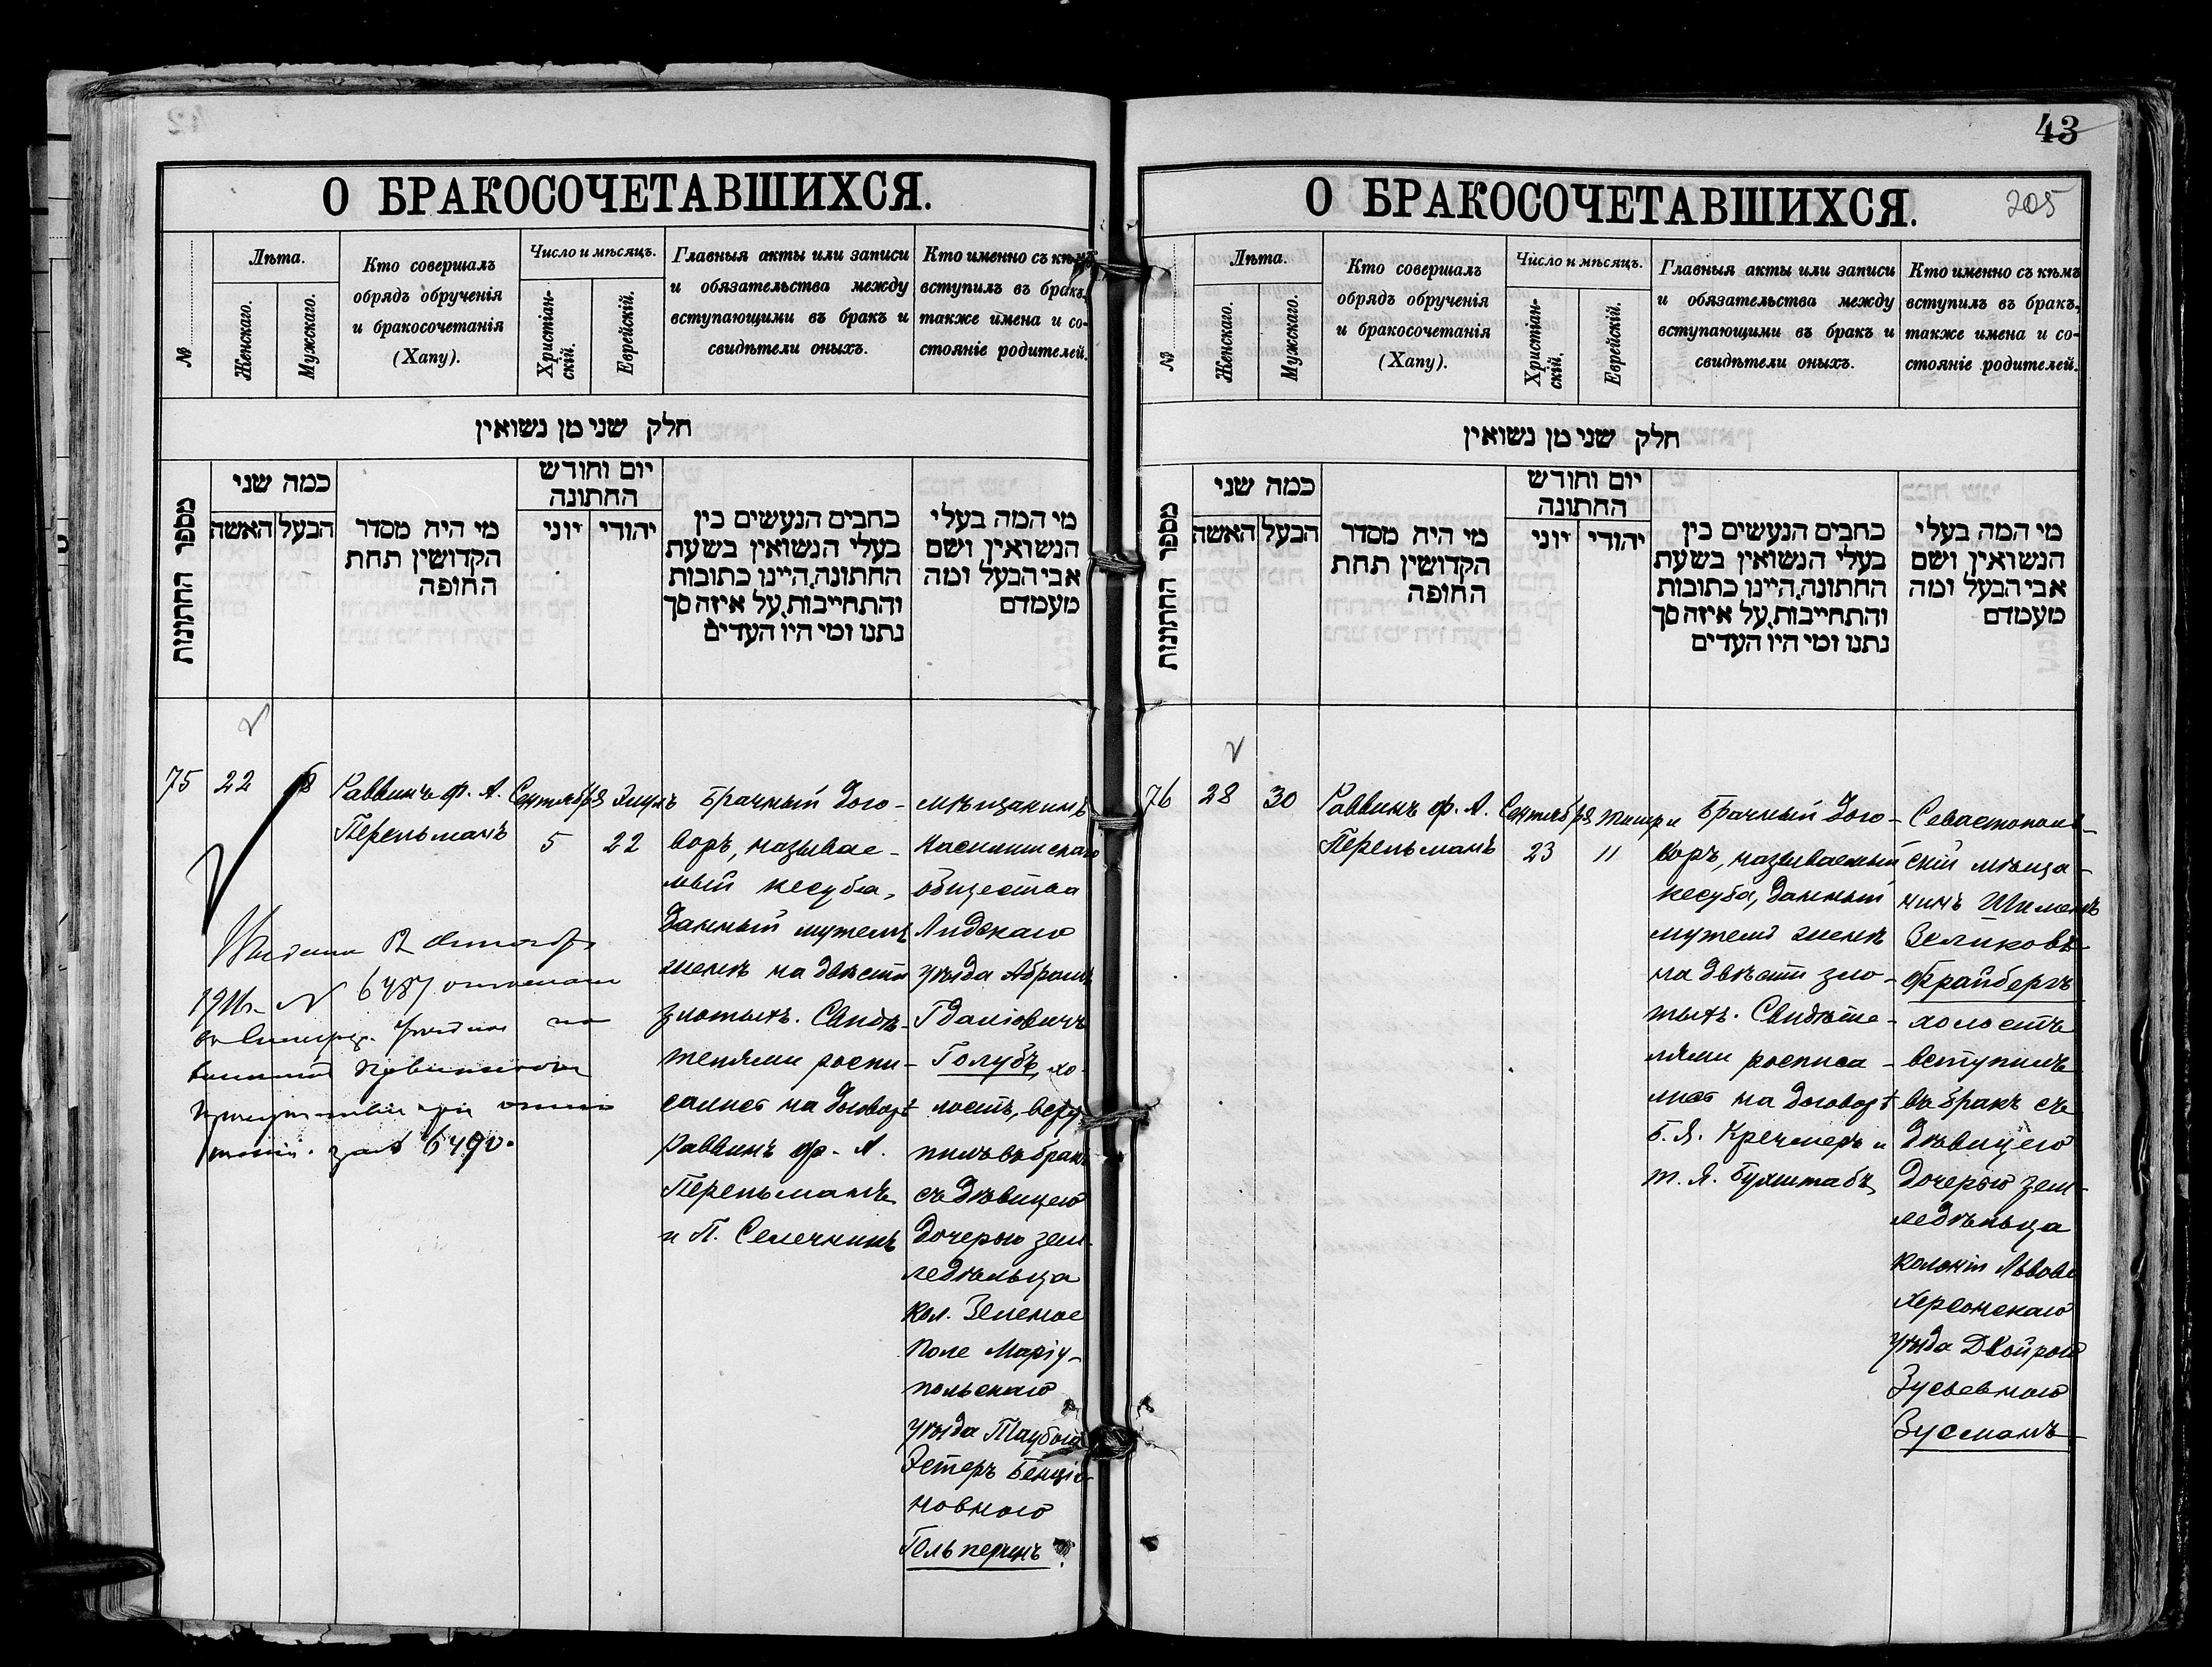 О БРАКОСОЧЕТАВШИХСЯ.
№
Лѣта.
Женскаго.
Мужскаго.
Кто совершалъ
обрядъ обрученія
и бракосочетанія
(Хапу).
Число и мѣсяцъ.
Христіан-
скій.
Еврейскій.
Главныя акты или записи
и обязательства между
вступающими въ бракъ и
свидѣтели оныхъ.
Кто именно съ кѣмъ
вступилъ въ бракъ,
также имена и со-
стояніе родителей.
חלק שני מן נשואין
מספר החתונות
כמה שני
האשה
הבעל
מי היה מסדר
הקדושין תחת
החופה
יום וחודש
החתונה
יוני
יהודי
כתבים הנעשים בין
בעלי הנשואין בשעת
החתונה, היינו כתובות
והתחייבות, על איזה סך
נתנו ומי היו העדים
מי המה בעלי
הנשואין ושם
אבי הבעל ומה
מעמדם
75
22
Раввинъ Ф. А.
Перельманъ
Сентября
5
Элулъ
22
Брачный дого-
воръ, называе-
мый кесуба,
данный мужемъ
женѣ на двѣсти
злотыхъ. Свидѣ-
телями роспи-
сались на договорѣ
Раввинъ Ф. А.
Перельманъ
и П. Селечникъ
мѣщанинъ
общества
Лидскаго
уѣзда Абрамъ
Гдаліовичъ
Голубъ, хо-
лостъ, всту-
пилъ въ бракъ
съ дѣвицею
дочерью зем-
ледѣльца
кол. Зеленое
Поле Маріу-
польскаго
уѣзда Таубою
Эстеръ Бенціо-
новною
Гельперинъ.
6487
43
205
О БРАКОСОЧЕТАВШИХСЯ.
№
Лѣта.
Женскаго.
Мужскаго.
Кто совершалъ
обрядъ обрученія
и бракосочетанія
(Хапу).
Число и мѣсяцъ.
Христіан-
скій.
Еврейскій.
Главныя акты или записи
и обязательства между
вступающими въ бракъ и
свидѣтели оныхъ.
Кто именно съ кѣмъ
вступилъ въ бракъ,
также имена и со-
стояніе родителей.
חלק שני מן נשואין
מספר החתונות
כמה שני
האשה
הבעל
מי היה מסדר
הקדושין תחת
החופה
יום וחודש
החתונה
יוני
יהודי
כתבים הנעשים בין
בעלי הנשואין בשעת
החתונה, היינו כתובות
והתחייבות, על איזה סך
נתנו ומי היו העדים
מי המה בעלי
הנשואין ושם
אבי הבעל ומה
מעמדם
76
28
30
Раввинъ Ф. А.
Перельманъ
Сентября
23
Тишри
11
Брачный дого-
воръ, называемый
кесуба, данный
мужемъ женѣ
на двѣсти зло-
тыхъ. Свидѣте-
лями росписа-
лись на договорѣ
Б. Я. Кречмеръ и
Т. Я. Бухштабъ
Севастополь-
скій мѣща-
нинъ Шилемъ
Зеликовъ
Фрайбергъ
холостъ
вступилъ
въ бракъ съ
дѣвицею
дочерью зем-
ледѣльца
колоніи Львово
Херсонскаго
уѣзда Двойрою
Зусьевною
Зусманъ